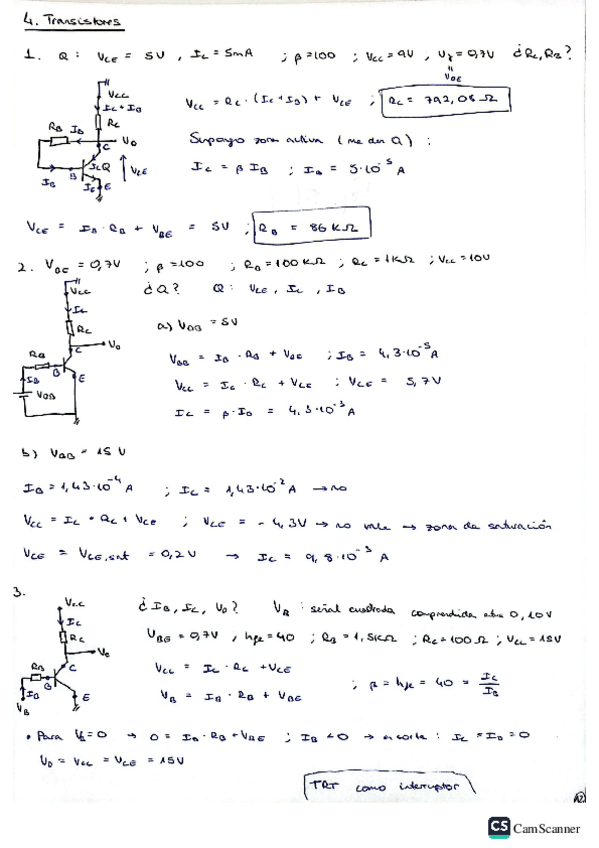 4. Transistores
1. Q: VCE = 5V , IC = 5mA ; β=100 ; VCC = 9V , Vγ = 0,7V ¿RC, RB?
VBE
VCC
IC + IB
RC
RB
V0
C
B
ICQ
VCE
IB
IE
E
VCC = RC · (IC + IB) + VCE ; RC = 792,08 Ω
Supongo zona activa (me dan Q) :
IC = β IB ; IB = 5·10⁻⁵ A
VCE = IB · RB + VBE = 5V ; RB = 86 KΩ
2. VBE = 0,7V ; β=100 ; RB = 100 KΩ ; RC = 1KΩ ; VCC = 10V
¿Q? Q: VCE , IC , IB
VCC
IC
RC
V0
C
RB
B
E
IB
VBB
a) VBB = 5V
VBB = IB · RB + VBE ; IB = 4,3·10⁻⁵ A
VCC = IC · RC + VCE ; VCE = 5,7V
IC = β·IB = 4,3·10⁻³ A
b) VBB = 15 V
IB = 1,43·10⁻⁴ A ; IC = 1,43·10⁻² A → no
VCC = IC · RC + VCE ; VCE = - 4,3V → no vale → zona de saturación
VCE = VCE,sat = 0,2V → IC = 9,8·10⁻³ A
3.
¿IB, IC, V0? VB : señal cuadrada comprendida entre 0, 10V
VBE = 0,7V , hfe = 40 ; RB = 1,5KΩ ; RC = 100 Ω ; VCC = 15V
VCC
IC
RC
V0
C
RB
B
E
IB
VB
VCC = IC · RC + VCE
VB = IB · RB + VBE ; β = hfe = 40 = IC/IB
• Para VB=0 → 0 = IB · RB + VBE ; IB < 0 → en corte : IC = IB = 0
V0 = VCC = VCE = 15V
TRT como interruptor
CS CamScanner